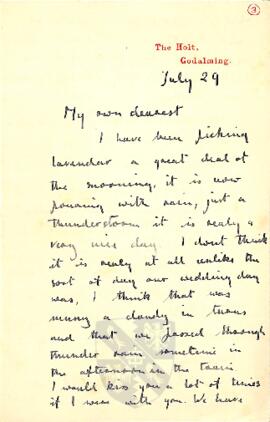 3
The Holt,
Godalming.
July 29
My own dearest
I have been picking
lavender a great deal of
the morning, it is now
pouring with rain, just a
thunderstorm it is really a
very nice day. I dont think
it is really at all unlike the
sort of day our wedding day
was, I think that was
sunny & cloudy in turns
and that we passed through
thunder rain sometime in
the afternoon in the train
I would kiss you a lot of times
if I were with you. We have